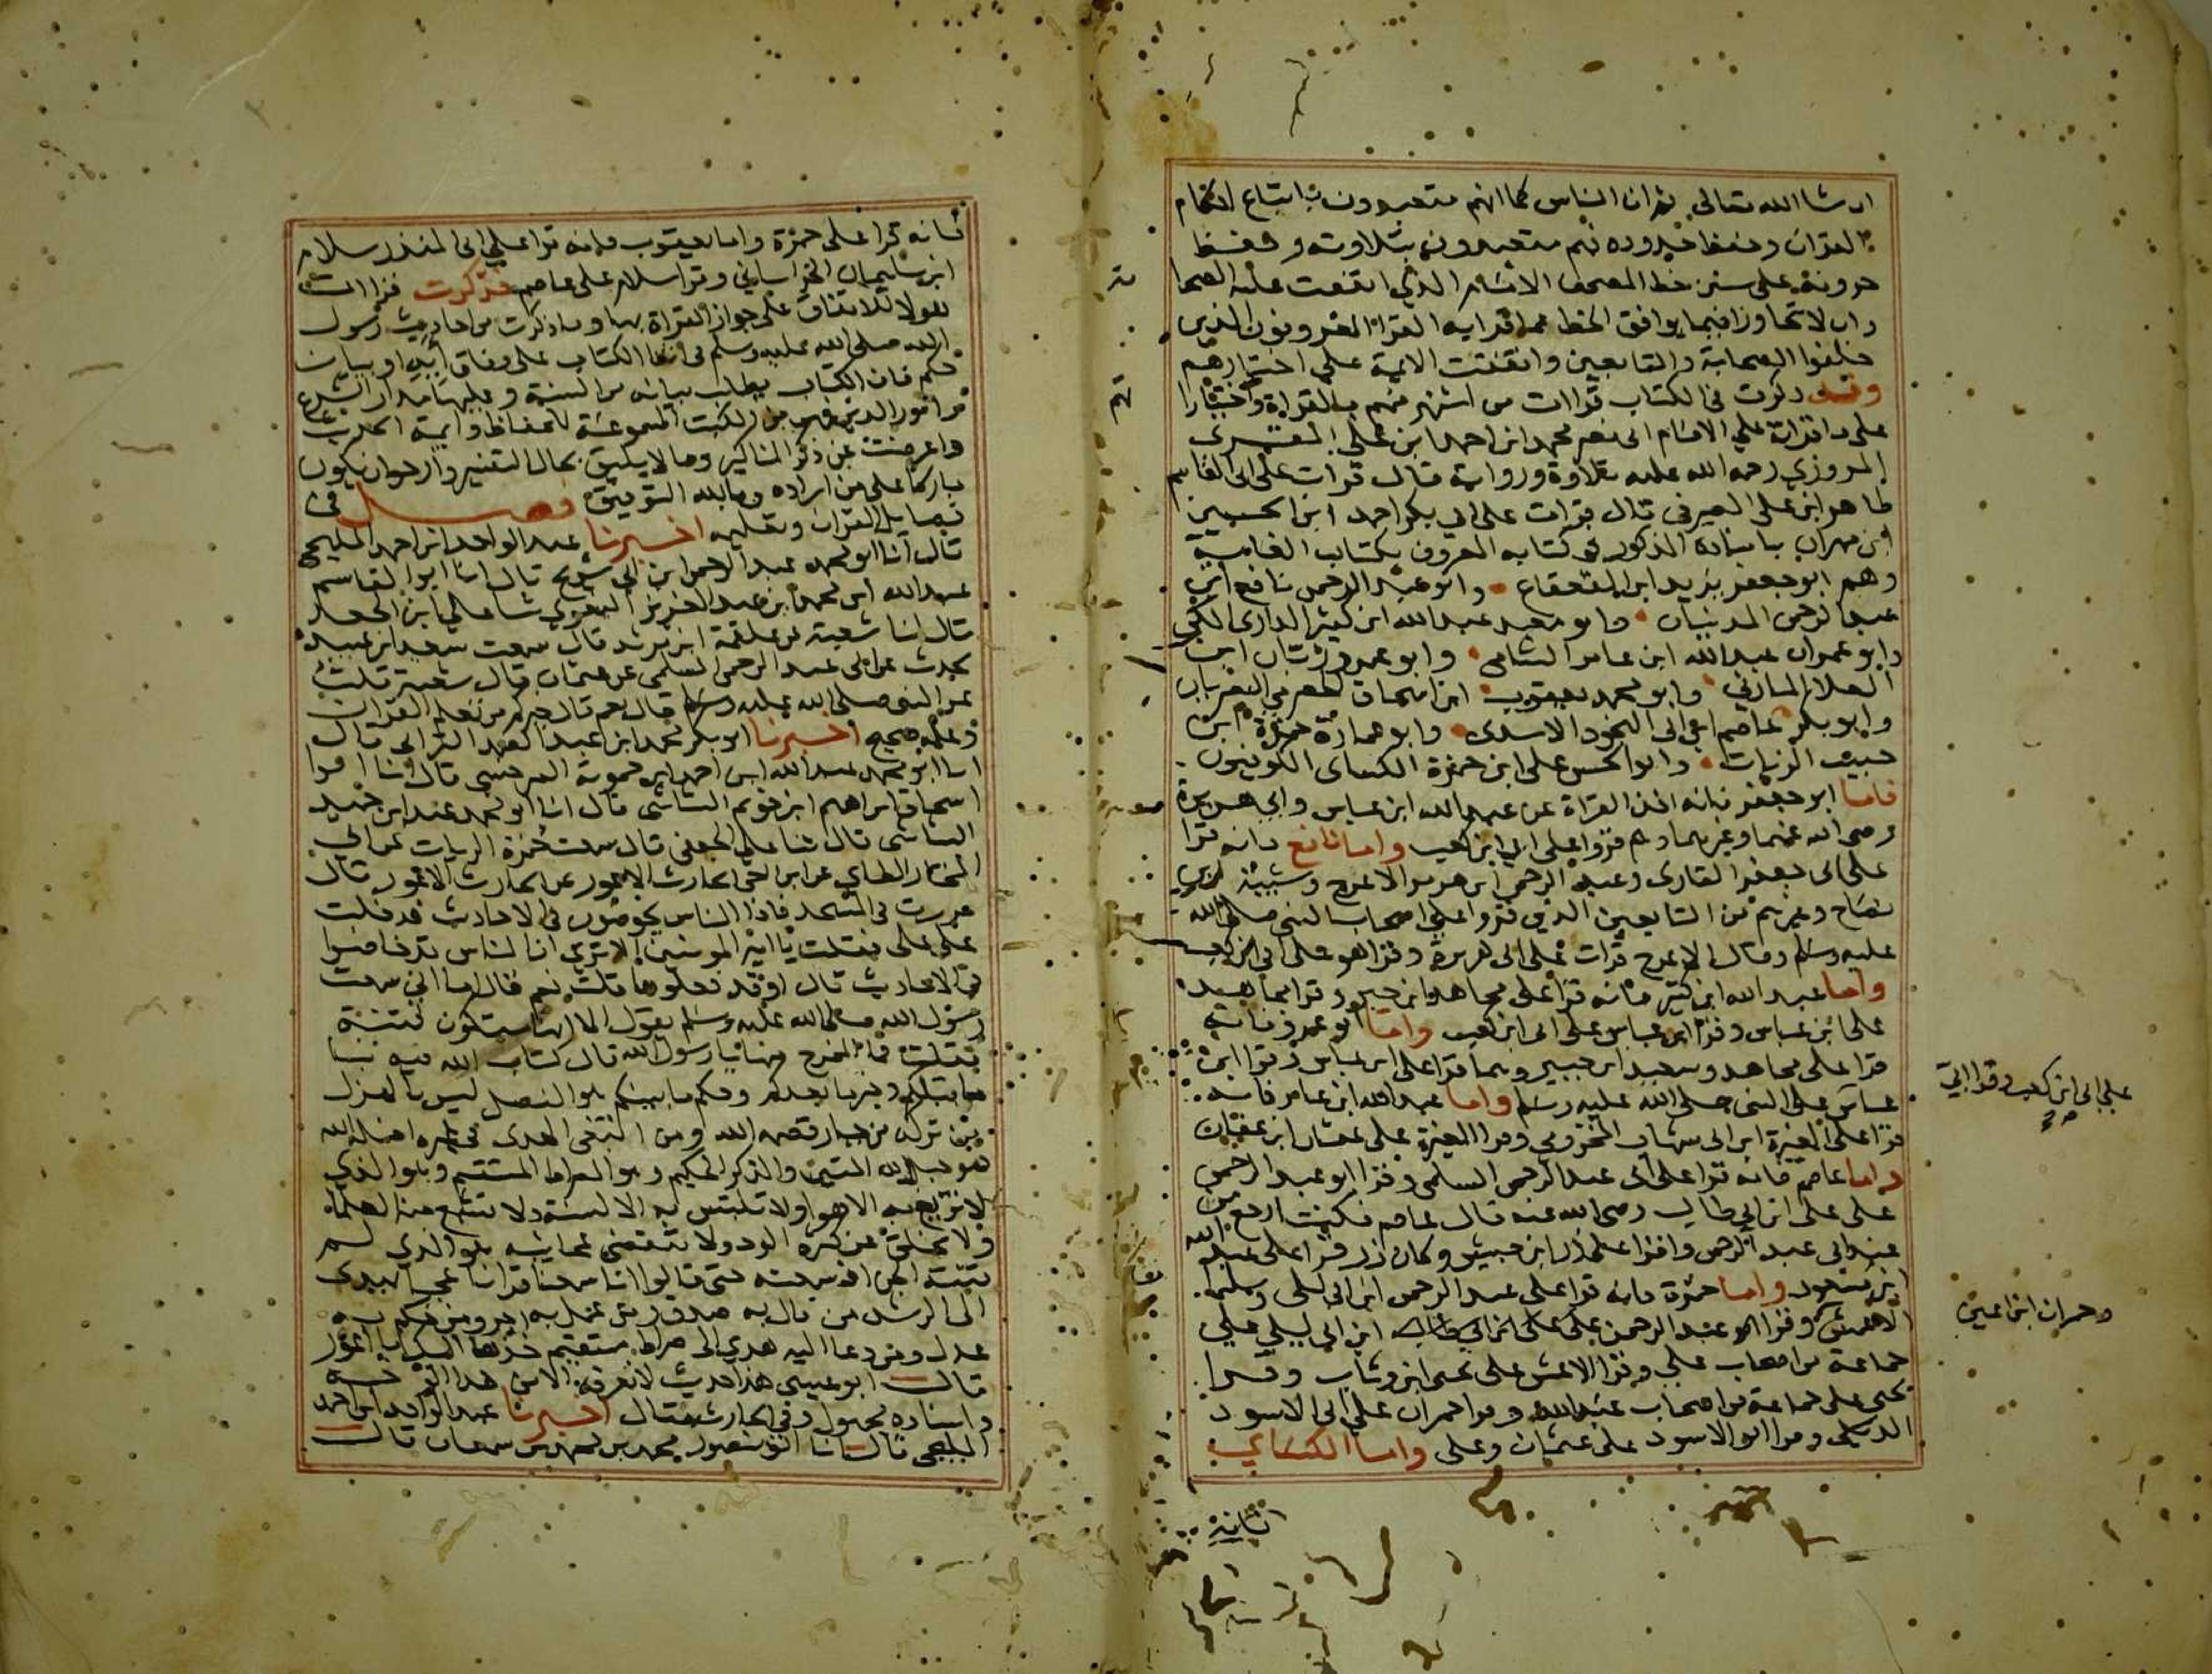 ان شا الله تعالى ثم ان الناس كما انهم متعبدون باتباع احكام
القران وحفظ حدوده فهم متعبدون بتلاوته وحفظ
حروفه على سنن خط المصحف الامام الذي اتفقت عليه الصحا
وان لا تجاوزا فيما يوافق الخط عما قرا به القرا المعروفون الذين
خلفوا الصحابة والتابعين واتفقت الايمة على اختيارهم
وقد ذكرت في الكتاب قراات من اشتهر منهم بالقراة واختيارا
على ما قراته على الامام ابى نصر محمد ابن احمد ابن على المقرى
المروزي رحمه الله عليه تلاوة ورواية قال قرات على ابى القاسم
طاهر ابن على الصيرفى قال قرات على ابي بكر احمد ابن الحسين
ابن مهران باسناده المذكور فى كتابه المعروف بكتاب الغاية
وهم ابو جعفر يزيد ابن القعقاع وابو عبد الرحمن نافع ابن
عبد الرحمن المدنيان وابو معبد عبد الله ابن كثير الدارى المكى
وابو عمران عبد الله ابن عامر الشامى وابو عمرو زبان ابن
العلا المازني وابو محمد يعقوب ابن اسحاق الحضرمي البصريان
وابو بكر عاصم ابن ابى النجود الاسدى وابو عمارة حمزة ابن
حبيب الزيات وابو الحسن على ابن حمزة الكساى الكوفيون
فاما ابو جعفر فانه اخذ القراة عن عبد الله ابن عباس وابى هريرة
رضى الله عنهما وغيرهما وهم قروا على ابي ابن كعب واما نافع فانه قرا
على ابى جعفر القارى وعبد الرحمن ابن هرمز الاعرج وشيبة ابن
نصاح وغيرهم من التابعين الذين قروا على اصحاب النبى صلى الله
عليه وسلم وقال الاعرج قرات على ابى هريرة وقرا هو على ابى ابن كعب
واما عبد الله ابن كثير فانه قرا على مجاهد ابن جبر وقرا مجاهد
على ابن عباس وقرا ابن عباس على ابى ابن كعب واما ابو عمرو فانه
قرا على مجاهد وسعيد ابن جبير وهما قرا على ابن عباس وقرا ابن
على ابى ابن كعب وقرا ابي
عباس على النبى صلى الله عليه وسلم واما عبد الله ابن عامر فانه
قرا على المغيرة ابن ابى شهاب المخزومي وقرا المغيرة على عثمان ابن عفان
واما عاصم فانه قرا على ابى عبد الرحمن السلمى وقرا ابو عبد الرحمن
على على ابن ابى طالب رضى الله عنه قال عاصم فكنت ارجع من
عند ابى عبد الرحمن واقرا على زر ابن حبيش وكان زر قرا على عبد الله
ابن مسعود واما حمزة فانه قرا على عبد الرحمن ابن ابى ليلى وسليمان
وحمران ابن اعين
الاعمش وقرا ابو عبد الرحمن على على ابن ابى طالب ابن ابى ليلى على
جماعة من اصحاب على وقرا الاعمش على يحيى ابن وثاب وقرا
يحيى على جماعة من اصحاب عبد الله وقرا حمران على ابى الاسود
الديلى وقرا ابو الاسود على عثمان وعلى واما الكساي
فانه قرا على حمزة واما يعقوب فانه قرا على ابى المنذر سلام
ابن سليمان الخراساني وقرا سلام على عاصم فذكرت قراات
هولا للاتفاق على جواز القراة بها وما ذكرت من احاديث رسول
الله صلى الله عليه وسلم فى اثنا الكتاب على وفاق اية او بيان
حكم فان الكتاب يطلب بيانه من السنة وعليهما مدار الشرع
وامور الدين فهى من الكتب المسموعة للحفاظ وايمة الحديث
واعرضت عن ذكر المناكير وما لا يليق بحال التفسير وارجو ان يكون
مباركا على من اراده وبالله التوفيق فصل فى
فضايل القران وتعليمه اخبرنا عبد الواحد ابن احمد المليحى
قال انا ابو محمد عبد الرحمن ابن ابى شريح قال انا ابو القاسم
عبد الله ابن محمد ابن عبد العزيز البغوي ثنا على ابن الجعد
قال انا شعبة عن علقمة ابن مرثد قال سمعت سعد ابن عبيدة
يحدث عن ابى عبد الرحمن السلمى عن عثمان قال شعبة قلت
عن النبى صلى الله عليه وسلم قال نعم قال خيركم من تعلم القران
وعلمه صحيح اخبرنا ابو بكر محمد ابن عبد الصمد الترابى قال
انا ابو محمد عبد الله ابن احمد ابن حموية السرخسى قال انا ابو
اسحاق ابراهيم ابن خزيم الشاشى قال انا ابو محمد عبد ابن حميد
الشاشى قال ثنا على الجعفى قال سمعت حمزة الزيات عن ابى
المختار الطاي عن ابن اخى الحارث الاعور عن الحارث الاعور قال
مررت فى المسجد فاذا الناس يخوضون فى الاحاديث فدخلت
على على فقلت يا امير المومنين الا ترى ان الناس قد خاضوا
فى الاحاديث قال اوقد فعلوها قلت نعم قال اما انى سمعت
رسول الله صلى الله عليه وسلم يقول الا انها ستكون فتنة
فقلت فما المخرج منها يا رسول الله قال كتاب الله فيه نبا
ما قبلكم وخبر ما بعدكم وحكم ما بينكم هو الفصل ليس بالهزل
من تركه من جبار قصمه الله ومن ابتغى الهدى فى غيره اضله الله
هو حبل الله المتين والذكر الحكيم وهو الصراط المستقيم وهو الذي
لا تزيغ به الاهوا ولا تلتبس به الالسنة ولا تشبع منه العلما
ولا يخلق عن كثرة الرد ولا تنقضى عجايبه هو الذي لم
تنته الجن اذ سمعته حتى قالوا انا سمعنا قرانا عجبا يهدى
الى الرشد من قال به صدق ومن عمل به اجر ومن حكم به
عدل ومن دعا اليه هدي الى صراط مستقيم خذها اليك يا اعور
قال ابو عيسى هذا حديث لا نعرفه الا من هذا الوجه
واسناده مجهول وفى الحارث مقال اخبرنا عبد الواحد ابن احمد
المليحى قال انا ابو منصور محمد بن محمد بن سمعان قال